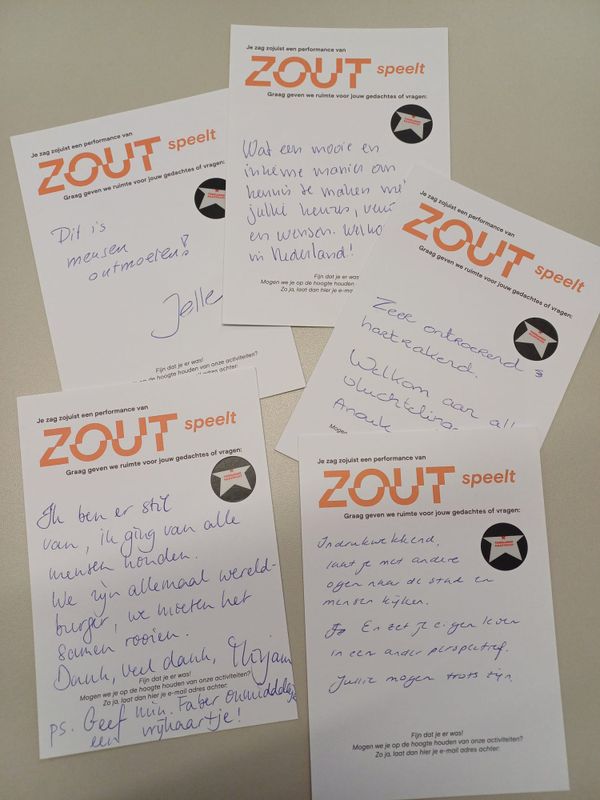 Je zag zojuist een performance van
ZOUT speelt
Graag geven we ruimte voor jouw gedachtes of vragen:
Wat een mooie en
intieme manier om
kennis te maken met
jullie keuzes,
en wensen.
in Nederland!
Fijn dat je er was!
Mogen we je op de hoogte houden
Zo ja, laat dan hier je e-mail
Je zag zojuist een performance van
ZOUT speelt
Graag geven we ruimte voor jouw gedachtes of vragen:
Dit is
mensen
ontmoeten!
Jelle
Fijn dat je er was!
Mogen we je op de hoogte houden van onze activiteiten?
Zo ja, laat dan hier je e-mail adres achter:
Je zag zojuist een performance van
ZOUT speelt
Graag geven we ruimte voor jouw gedachtes of vragen:
Zeer ontroerend &
hartrakend.
Welkom aan all
vluchteling
Anouk
Mogen
Je zag zojuist een performance van
ZOUT speelt
Graag geven we ruimte voor jouw gedachtes of vragen:
Ik ben er stil
van, ik ging van alle
mensen houden.
We zijn allemaal wereld-
burger, we moeten het
samen rooien.
Dank, veel dank, Mirjam
Fijn dat je er was!
Mogen we je op de hoogte houden van onze activiteiten?
Zo ja, laat dan hier je e-mail adres achter:
ps. Geef min. Faber onmiddelijk
een vrijkaartje!
Je zag zojuist een performance van
ZOUT speelt
Graag geven we ruimte voor jouw gedachtes of vragen:
Indrukwekkend,
laat je met andere
ogen naar de stad en
mensen kijken.
En zet je eigen leven
in een ander perspectief.
Jullie mogen trots zijn.
Fijn dat je er was!
Mogen we je op de hoogte houden van onze activiteiten?
Zo ja, laat dan hier je e-mail adres achter: